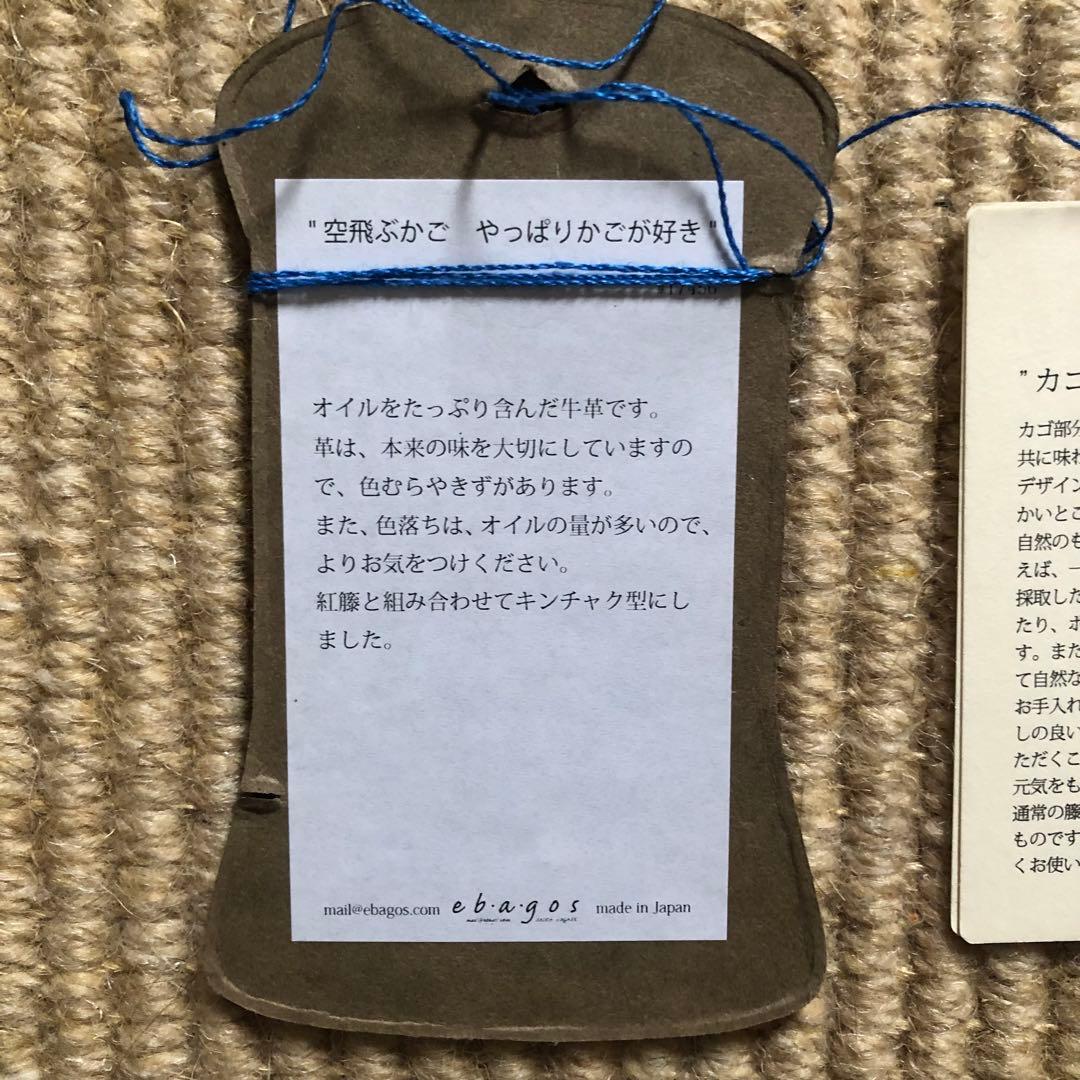 " 空飛ぶかご　やっぱりかごが好き "
オイルをたっぷり含んだ牛革です。
革は、本来の味を大切にしていますの
で、色むらやきずがあります。
また、色落ちは、オイルの量が多いので、
よりお気をつけください。
紅籐と組み合わせてキンチャク型にし
ました。
mail@ebagos.com e b・a・g o s made in Japan
" カゴ
カゴ部分
共に味わ
デザイン
かいとこ
自然のも
えば、一
採取した
たり、ホ
す。また
て自然な
お手入れ
しの良い
ただくこ
元気をも
通常の籐
ものです
くお使い